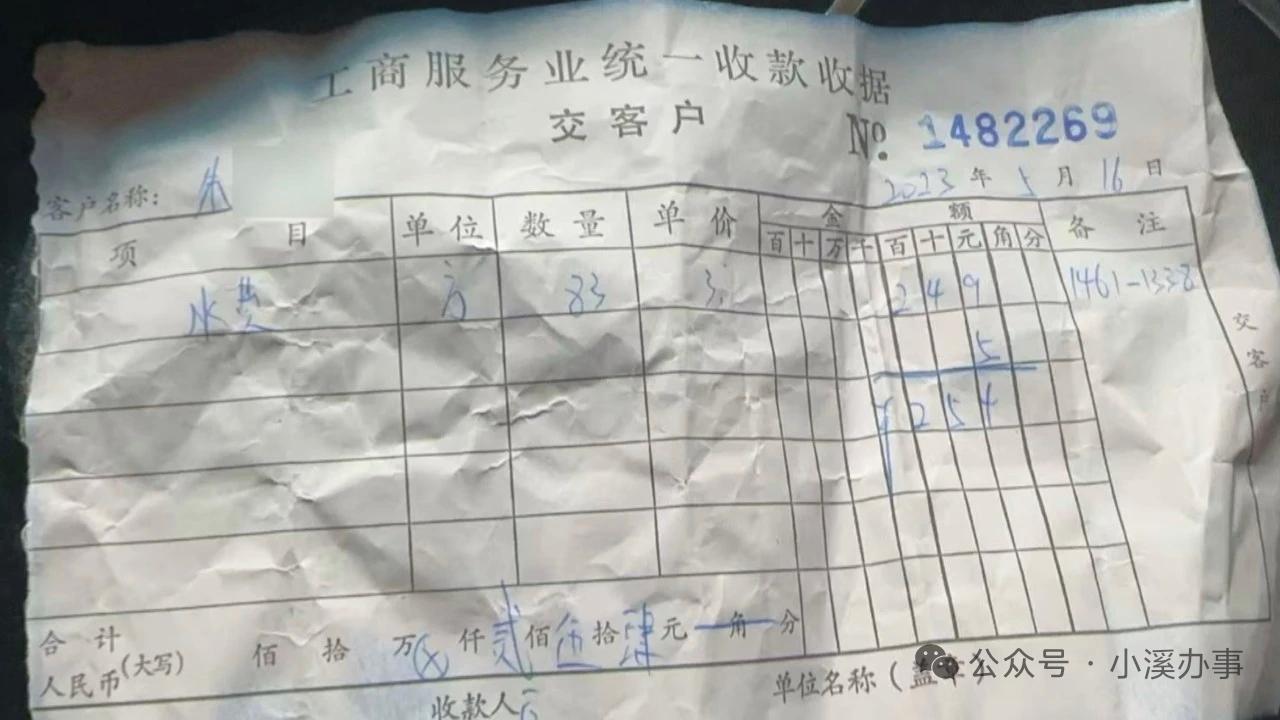 工商服务业统一收款收据
交客户
№ 1482269
2023 年 5 月 16 日
客户名称: 朱
项 目 单位 数量 单价 金 额 备 注
百 十 万 千 百 十 元 角 分
水费 方 83 3 2 4 9 1461-1338
5
¥ 2 5 4
交客户
合 计
人民币(大写) 佰 拾 万 ⊗ 仟 贰 佰 伍 拾 肆 元 角 分
收款人
单位名称(盖章)
公众号 · 小溪办事